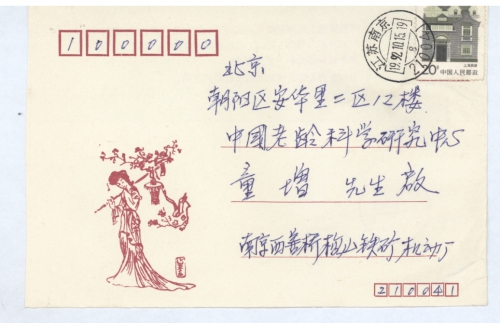 100000
江苏南京
1992.10.15.19
20分 中国人民邮政
北京
朝阳区安华里二区12楼
中國老龄科学研究中心
童增 先生啟
南京西善桥梅山铁矿机动厂
210041